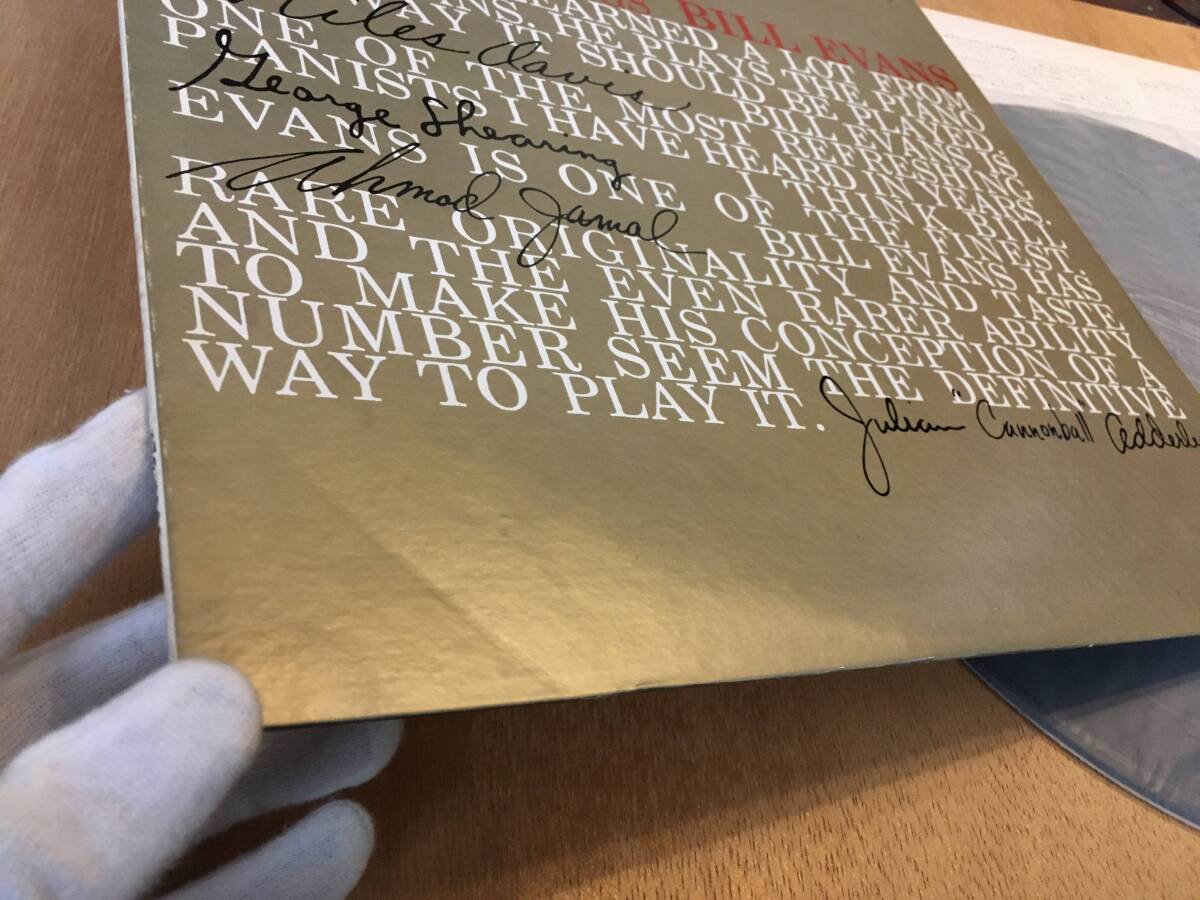 BILL EVANS
EARNED A LOT FROM
ANS. HE PLAYS THE PIANO
WAY IT SHOULD BE PLAYED.
Miles Davis BILL EVANS IS
ONE OF THE MOST REFRESHING
PIANISTS I HAVE HEARD IN YEARS.
George Shearing I THINK BILL
EVANS IS ONE OF THE FINEST.
Ahmad Jamal BILL EVANS HAS
RARE ORIGINALITY AND TASTE
AND THE EVEN RARER ABILITY
TO MAKE HIS CONCEPTION OF A
NUMBER SEEM THE DEFINITIVE
WAY TO PLAY IT. Julian "Cannonball" Adderle